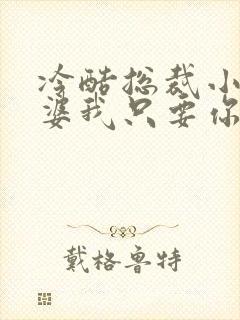 冷酷总裁小
婆我只要你
戴格鲁特